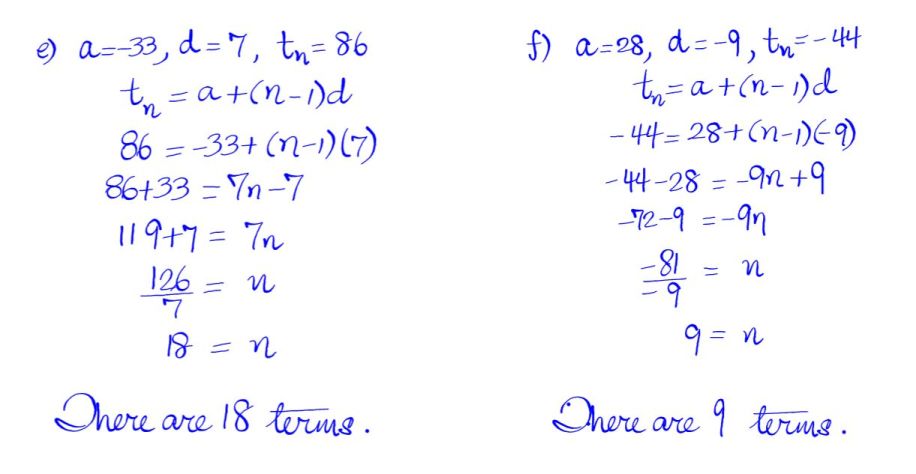 e) a=-33, d=7, tₙ=86
tₙ = a+(n-1)d
86 = -33+(n-1)(7)
86+33 = 7n-7
119+7 = 7n
126/7 = n
18 = n
There are 18 terms.
f) a=28, d=-9, tₙ=-44
tₙ=a+(n-1)d
-44=28+(n-1)(-9)
-44-28 = -9n+9
-72-9 = -9n
-81/-9 = n
9 = n
There are 9 terms.